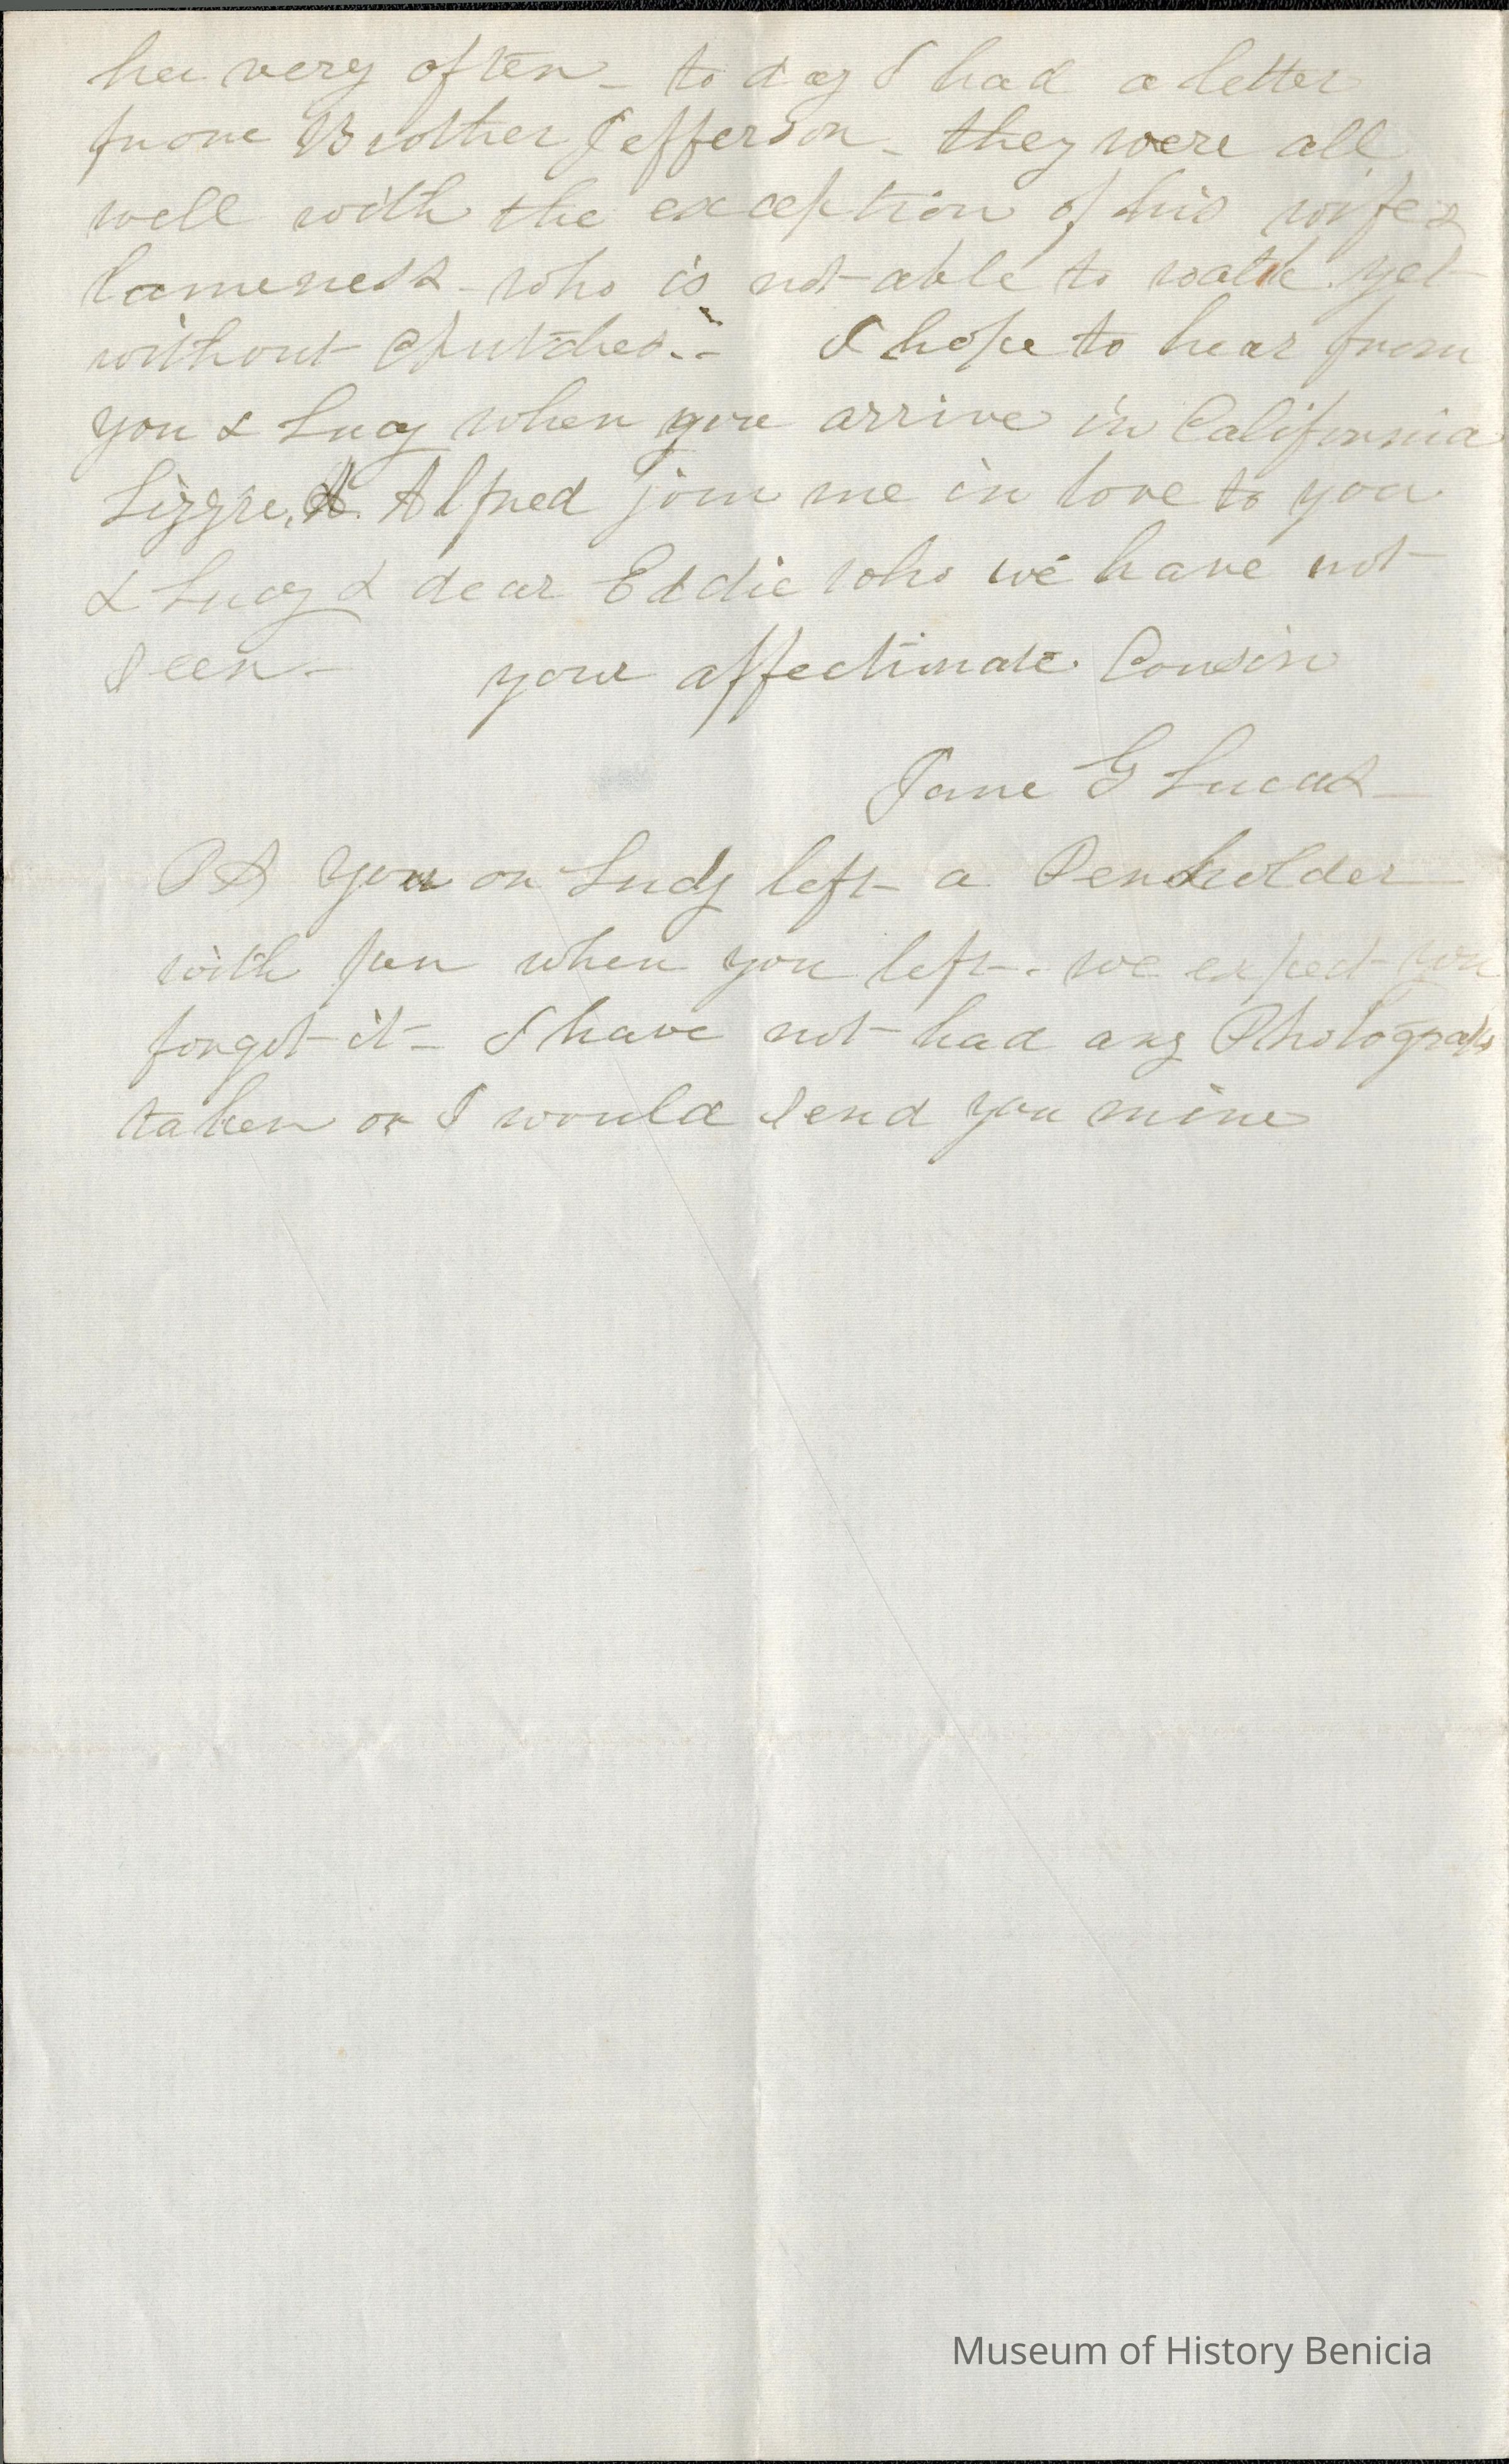 her very often - to day I had a letter
from Brother Jefferson - they were all
well with the exception of his wifes
lameness - who is not able to walk yet
without Crutches. - I hope to hear from
you & Lucy when you arrive in California
Lizzie, & Alfred join me in love to you
& Lucy & dear Eddie who we have not
seen - your affectionate Cousin
Jane G Lucas -
PS you or Lucy left a Penholder
with pen when you left - we expect you
forgot it - I have not had any Photographs
taken or I would send you mine
Museum of History Benicia